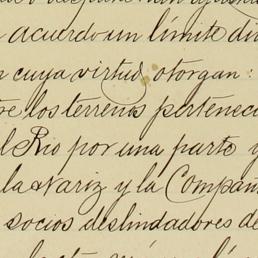 acuerdo un límite di
cuya virtud otorgan:
los terrenos pertenec
Rio por una parte y
la Nariz y la Compañ
socios deslindadores de